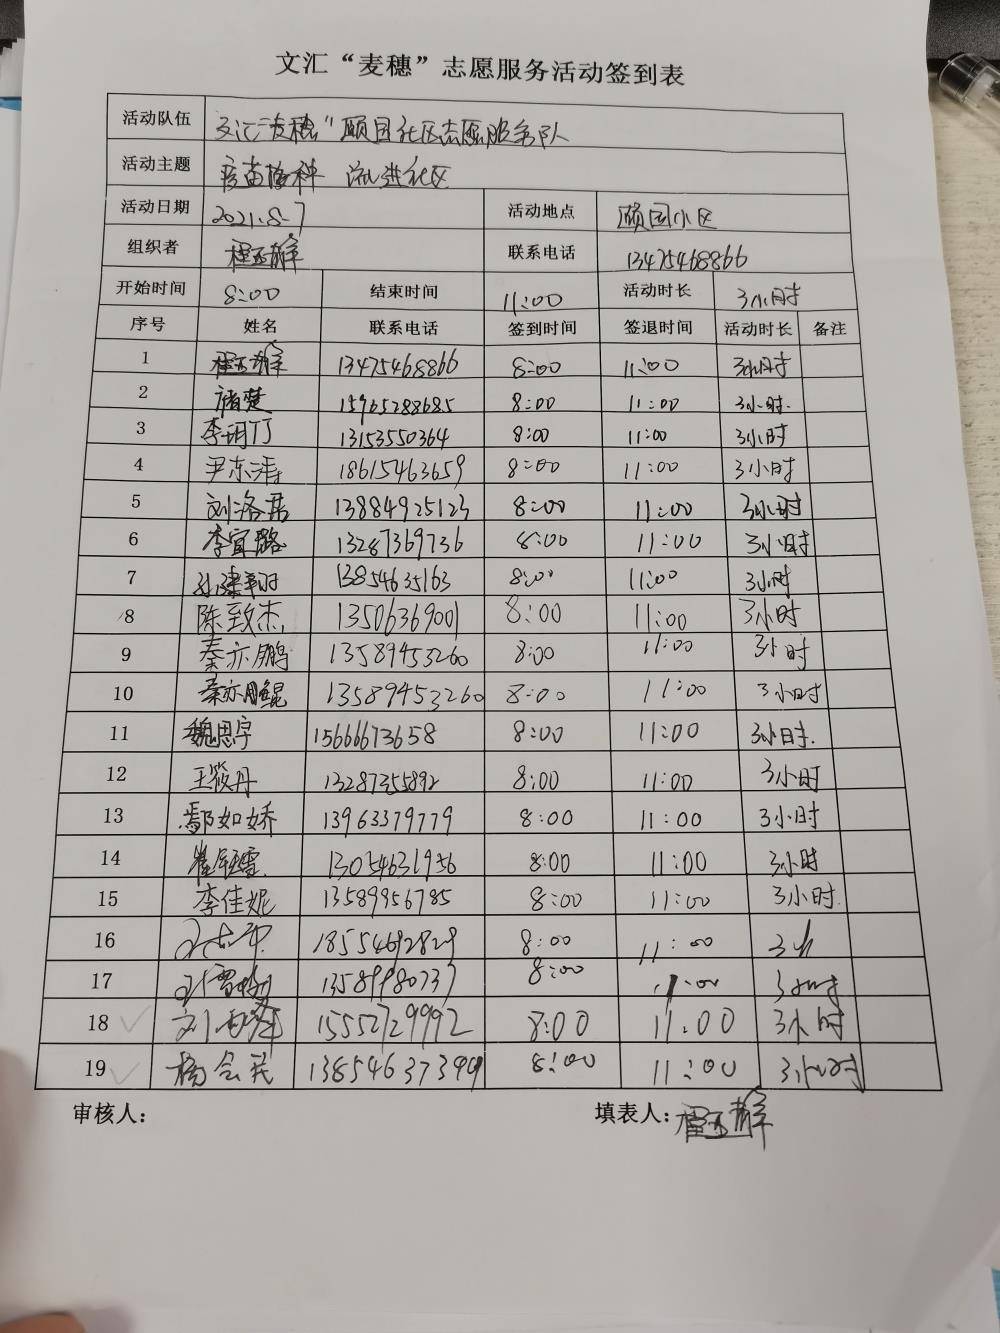 文汇“麦穗”志愿服务活动签到表
活动队伍 文汇“麦穗”颐园社区志愿服务队
活动主题 疫苗接种 流进社区
活动日期 2021.8.7 活动地点 颐园小区
组织者 联系电话 13475468866
开始时间 8:00 结束时间 11:00 活动时长 3小时
序号 姓名 联系电话 签到时间 签退时间 活动时长 备注
1 13475468866 8:00 11:00 3小时
2 褚楚 15965288685 8:00 11:00 3小时.
3 李玥竹 13153550364 8:00 11:00 3小时
4 尹东泽 18615463659 8:00 11:00 3小时
5 刘洛君 13884925123 8:00 11:00 3小时
6 李宜璐 13287369736 8:00 11:00 3小时
7 13854635163 8:00 11:00 3小时
8 陈致杰 13506369001 8:00 11:00 3小时
9 秦亦鹏 13589453260 8:00 11:00 3小时
10 秦亦鲲 13589453260 8:00 11:00 3小时
11 魏思宇 15666673658 8:00 11:00 3小时.
12 王筱丹 13287355892 8:00 11:00 3小时
13 鄢如娇 13963379779 8:00 11:00 3小时
14 崔钰雪 13054631956 8:00 11:00 3小时
15 李佳妮 13589956785 8:00 11:00 3小时.
16 18554692829 8:00 11:00 3小
17 13589980737 8:00 11:00 3小时
18 15552729992 8:00 11:00 3小时
19 杨会民 13854637399 8:00 11:00 3小时
审核人： 填表人：